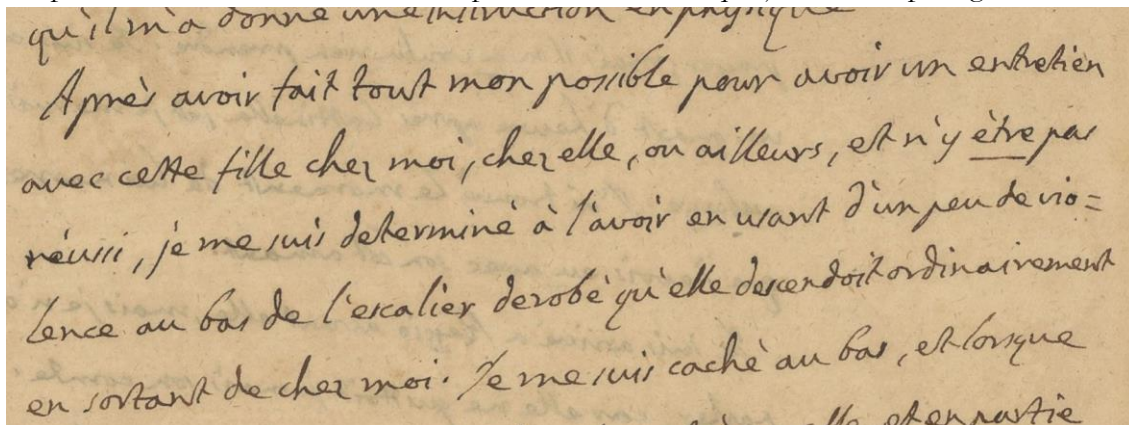 qu'il m'a donné une instruction en physique
Après avoir fait tout mon possible pour avoir un entretièn
avec cette fille chez moi, chez elle, ou ailleurs, et n'y être pas
réussi, je me suis determiné à l'avoir en usant d'un peu de vio=
lence au bas de l'escalier derobé qu'elle descendoit ordinairement
en sortant de chez moi. Je me suis caché au bas, et lorsque
elle et en partie